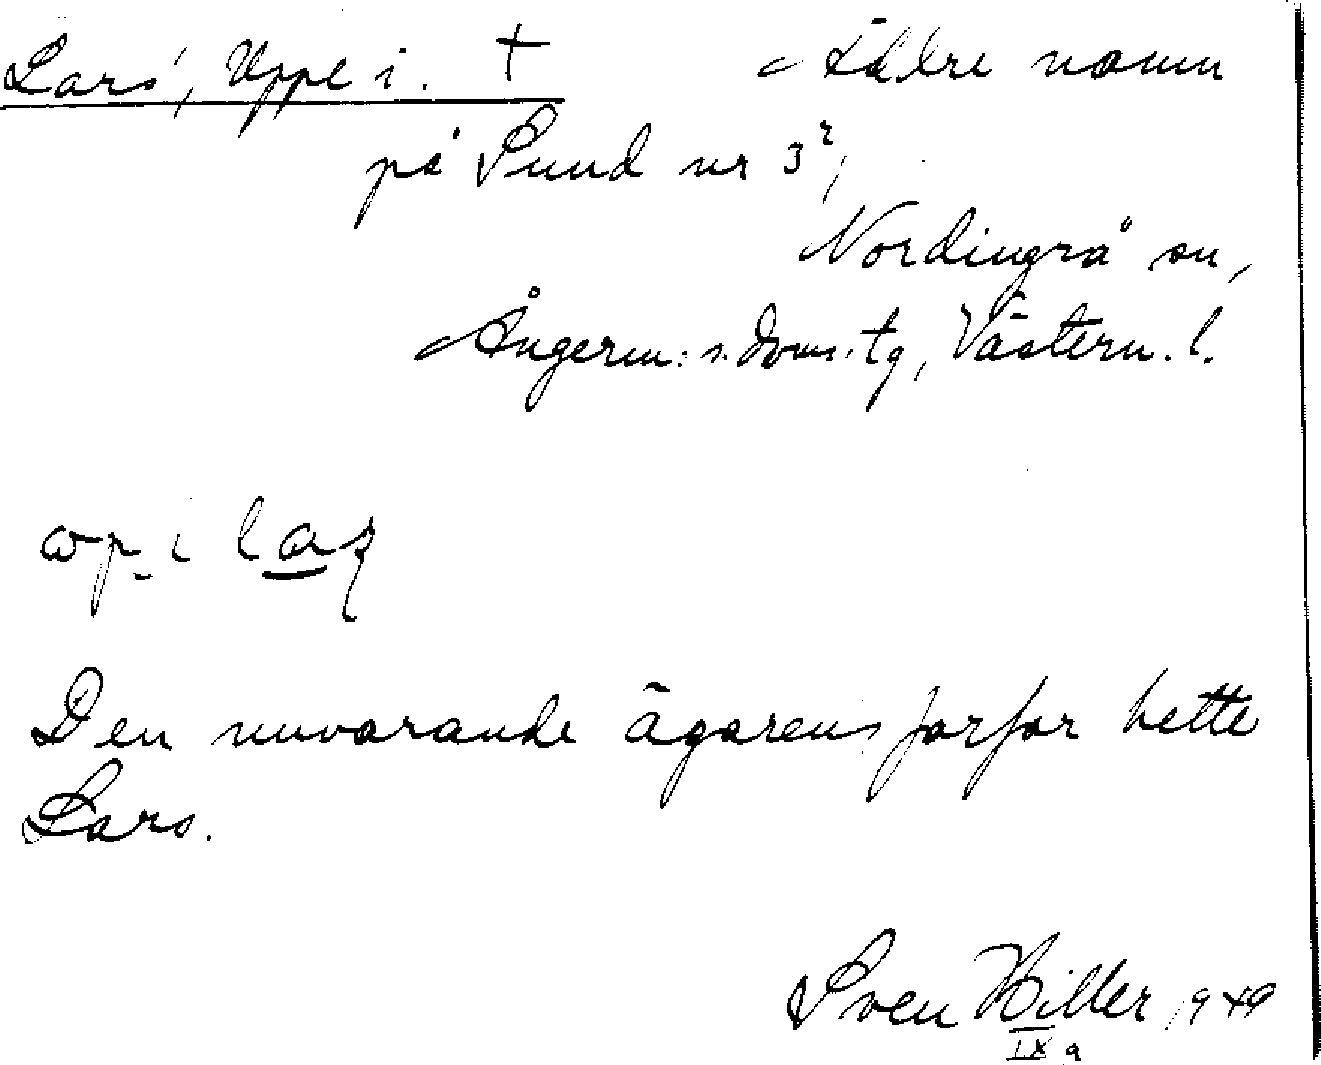 Lars', Uppe i. † Äldre namn
på Sund nr 3²,
Nordingrå sn,
Ångerm:s. doms. tg, Västern. l.
Den nuvarande ägarens farfar hette
Lars.
Sven Hiller 1949
IX a